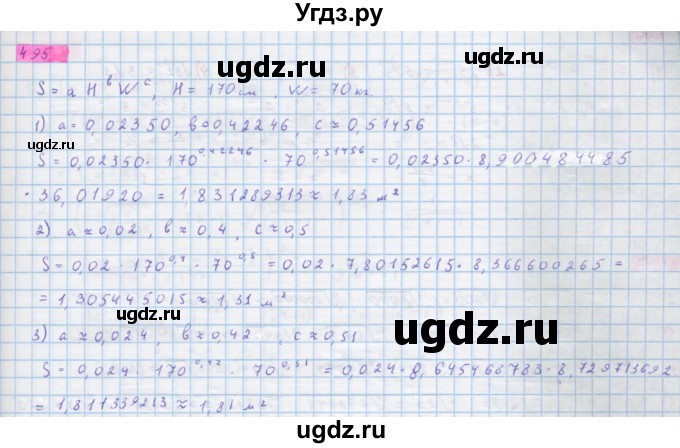 Угдз.ру
495
S = a H^b W^c, H = 170 см, W = 70 кг.
1) a ≈ 0,02350, b ≈ 0,42246, c ≈ 0,51456
S = 0,02350 · 170^0,42246 · 70^0,51456 = 0,02350 · 8,900484485
· 36,01920 = 1,831289313 ≈ 1,83 м²
ugdz.ru
2) a ≈ 0,02, b ≈ 0,4, c ≈ 0,5
S = 0,02 · 170^0,4 · 70^0,5 = 0,02 · 7,80152615 · 8,366600265 =
= 1,305445015 ≈ 1,31 м²
ugdz.ru
3) a ≈ 0,024, b ≈ 0,42, c ≈ 0,51
S = 0,024 · 170^0,42 · 70^0,51 = 0,024 · 8,645466783 · 8,729713692
= 1,811339213 ≈ 1,81 м²
ugdz.ru